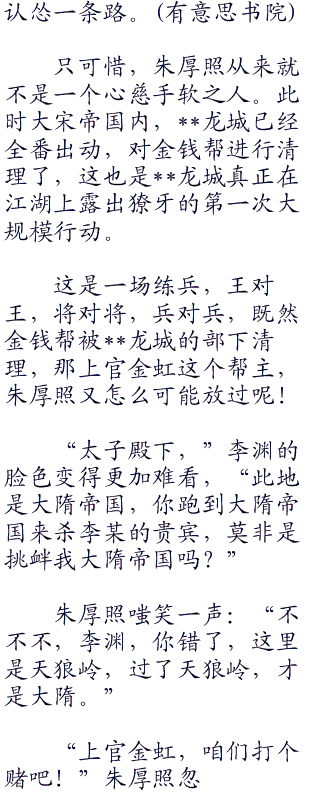 认怂一条路。(有意思书院)
只可惜，朱厚照从来就
不是一个心慈手软之人。此
时大宋帝国内，**龙城已经
全番出动，对金钱帮进行清
理了，这也是**龙城真正在
江湖上露出獠牙的第一次大
规模行动。
这是一场练兵，王对
王，将对将，兵对兵，既然
金钱帮被**龙城的部下清
理，那上官金虹这个帮主，
朱厚照又怎么可能放过呢！
“太子殿下，”李渊的
脸色变得更加难看，“此地
是大隋帝国，你跑到大隋帝
国来杀李某的贵宾，莫非是
挑衅我大隋帝国吗？”
朱厚照嗤笑一声：“不
不不，李渊，你错了，这里
是天狼岭，过了天狼岭，才
是大隋。”
“上官金虹，咱们打个
赌吧！”朱厚照忽